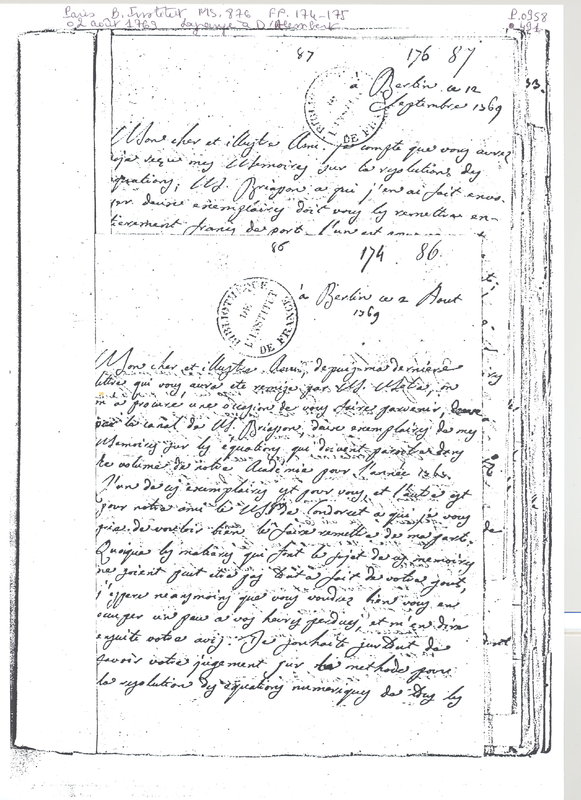 Paris B. Institut MS. 876 FF. 174-175
P.0958
2 août 1769 Lagrange à D'Alembert
491
87
176 87
à Berlin ce 12
Septembre 1769
BIBLIOTHÈQUE DE L'INSTITUT DE FRANCE
Mon cher et illustre Ami. je compte que vous aurez
reçu mes Memoires sur la resolution des
equations; M. Briasson a qui j'en ai fait envo-
deux exemplaires doit vous les remettre en-
tierement francs de port. l'un est
86
174 86.
BIBLIOTHÈQUE DE L'INSTITUT DE FRANCE
à Berlin ce 2 Aout
1769
Mon cher et illustre Ami, depuis ma derniere
lettre qui vous aura eté remise par M. on
m'a procuré une occasion de vous faire parvenir,
par le canal de M. Briasson, deux exemplaires de mes
Memoires sur les équations qui doivent paroitre dans
le volume de notre Académie pour l'année 1767.
L'un de ces exemplaires est pour vous, et l'autre est
pour notre ami le M. de Condorcet a qui je vous
prie de vouloir bien le faire remettre de ma part.
Quoique les matieres qui font le sujet de ces memoires
ne soient peut etre pas tout a fait de votre gout,
j'espere neanmoins que vous voudrez bien vous en
occuper un peu a vos heures perdues, et m'en dire
ensuite votre avis. Je souhaite surtout de
savoir votre jugement sur la methode pour
la resolution des equations numeriques de tous les